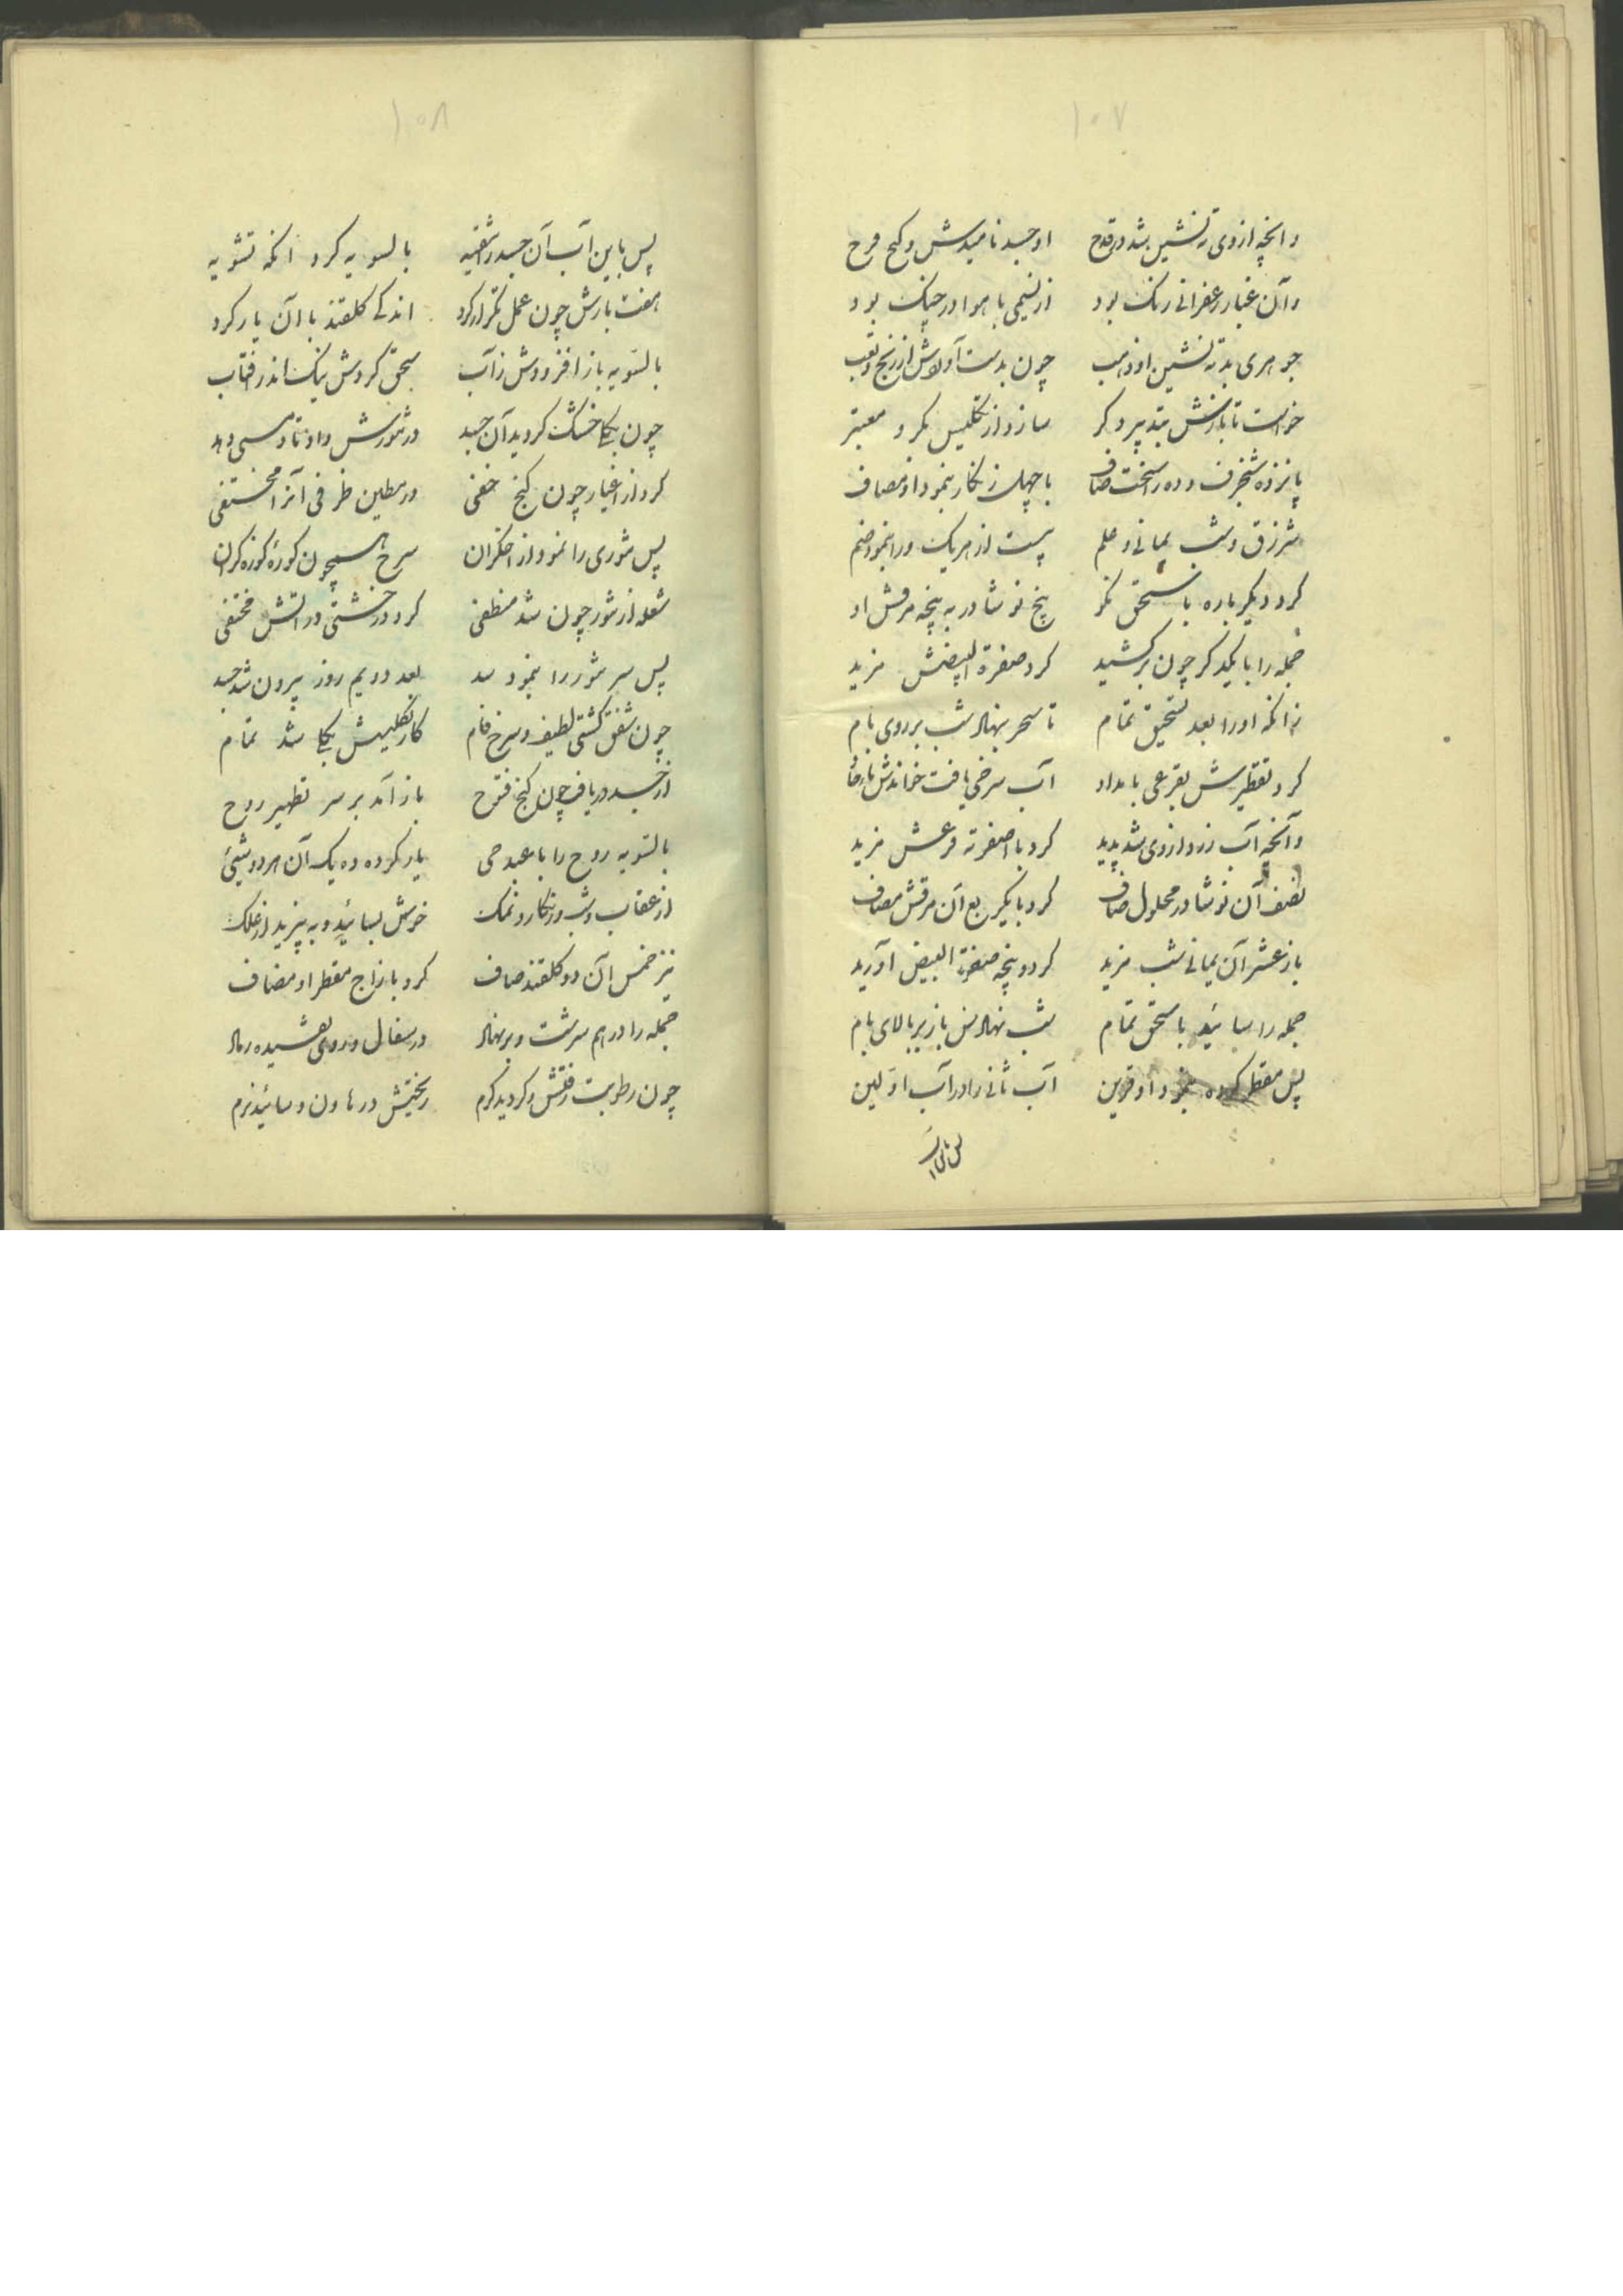 ۱۰۷
وانچه از وی ته نشین شد در قدح او جسد نامیدش و گنج فرح
وآن غبار زعفرانی رنک بود از نسیمی با هوا در جنک بود
جوهری بد ته نشین او ذهب چون بدست آوردش از رنج و تعب
خواست تا بازش بتدبیر دکر سازد از تکلیس بکر و معتبر
پانزده شنجرف و ده راسخت صاف با چهل زنکار بنمود او مضاف
زرق وشب یمانی و علم بیست از هریک ورا بنمود ضم
کرد دیکر باره با سحق نکو پنج نوشادر به پنجه مرقش او
جمله را با یکدکر چون برکشید کرد صفرة البیضش مزید
زانکه او را بعد تسحیق تمام تا سحر بنهاد شب بر روی بام
کرد تقطیرش بقرعی بامداد آب سرخی یافت خواندش
وآنچه آب زرد از وی شد پدید کرد با صفرته وعش مزید
نصف آن نوشادر محلول صاف کرد با یکربع آن مرقش مضاف
باز عشر آن یمانی شب مزید کرد و پنجه صفرة البیض آورید
جمله را سائید با سحق تمام شب نهادش باز بر بالای بام
پس مقطر کرده بنمود او قرین آب ثانی را در آب اولین
پس باین آب
۱۰۸
پس باین آب آن جسد را شقیه بالسویه کرد انکه تشویه
هفت بارش چون عمل تکرار کرد اندکی کلقند با آن یار کرد
بالسویه باز افزودش ز آب سحق کردش نیک اندر افتاب
چون یکجا خشک کردید آن جسد در تنورش داد تا
کرد از اغیار چون کنج خفی در مطین ظرفی آنرا مختفی
پس تنوری را نمود از اخکران سرخ همچون کورهٔ کوزه کران
شعله از تنور چون شد منطفی کرد در خشتی در اتش مختفی
پس سر تنور را بنمود سد بعد دویم روز بیرون شد جسد
چون شفق کشتی لطیف و سرخ فام کار تکلیسش یکجا شد تمام
از جسد دریافت چون کنج فتوح باز آمد بر سر تطهیر روح
بالسویه روح را با عبد حی یار کرده ده یک آن هر دو شیئ
از عقاب و شب و زنکار و نمک خوش بسائید و به بیزید از علک
نیز خمس آن دو کلقند صاف کرد با زاج مقطر او مضاف
جمله را در هم سرشت و برنهاد در سفال و روی
چون رطوبت رفتش و کردید کرم ریختیش در هاون و سائید نرم